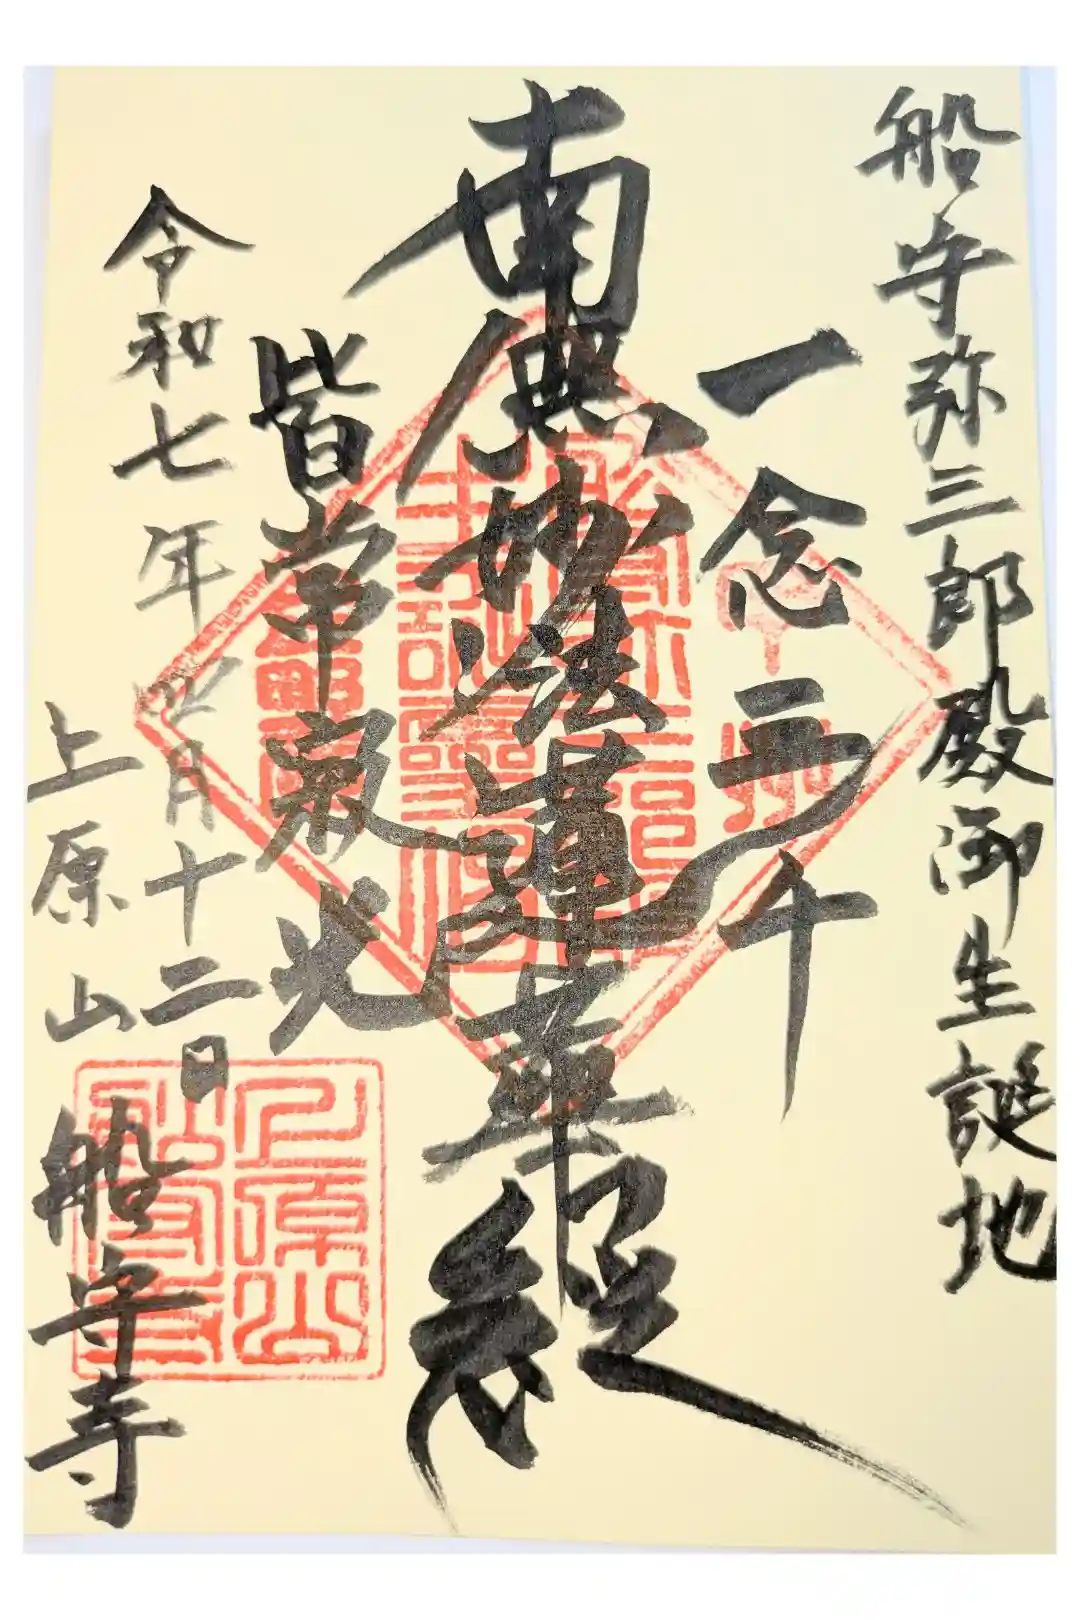 船守弥三郎殿御生誕地
一念三千
南無妙法蓮華経
皆帰寂光
令和七年 月十二日
上原山 船守寺
上原山
船守寺